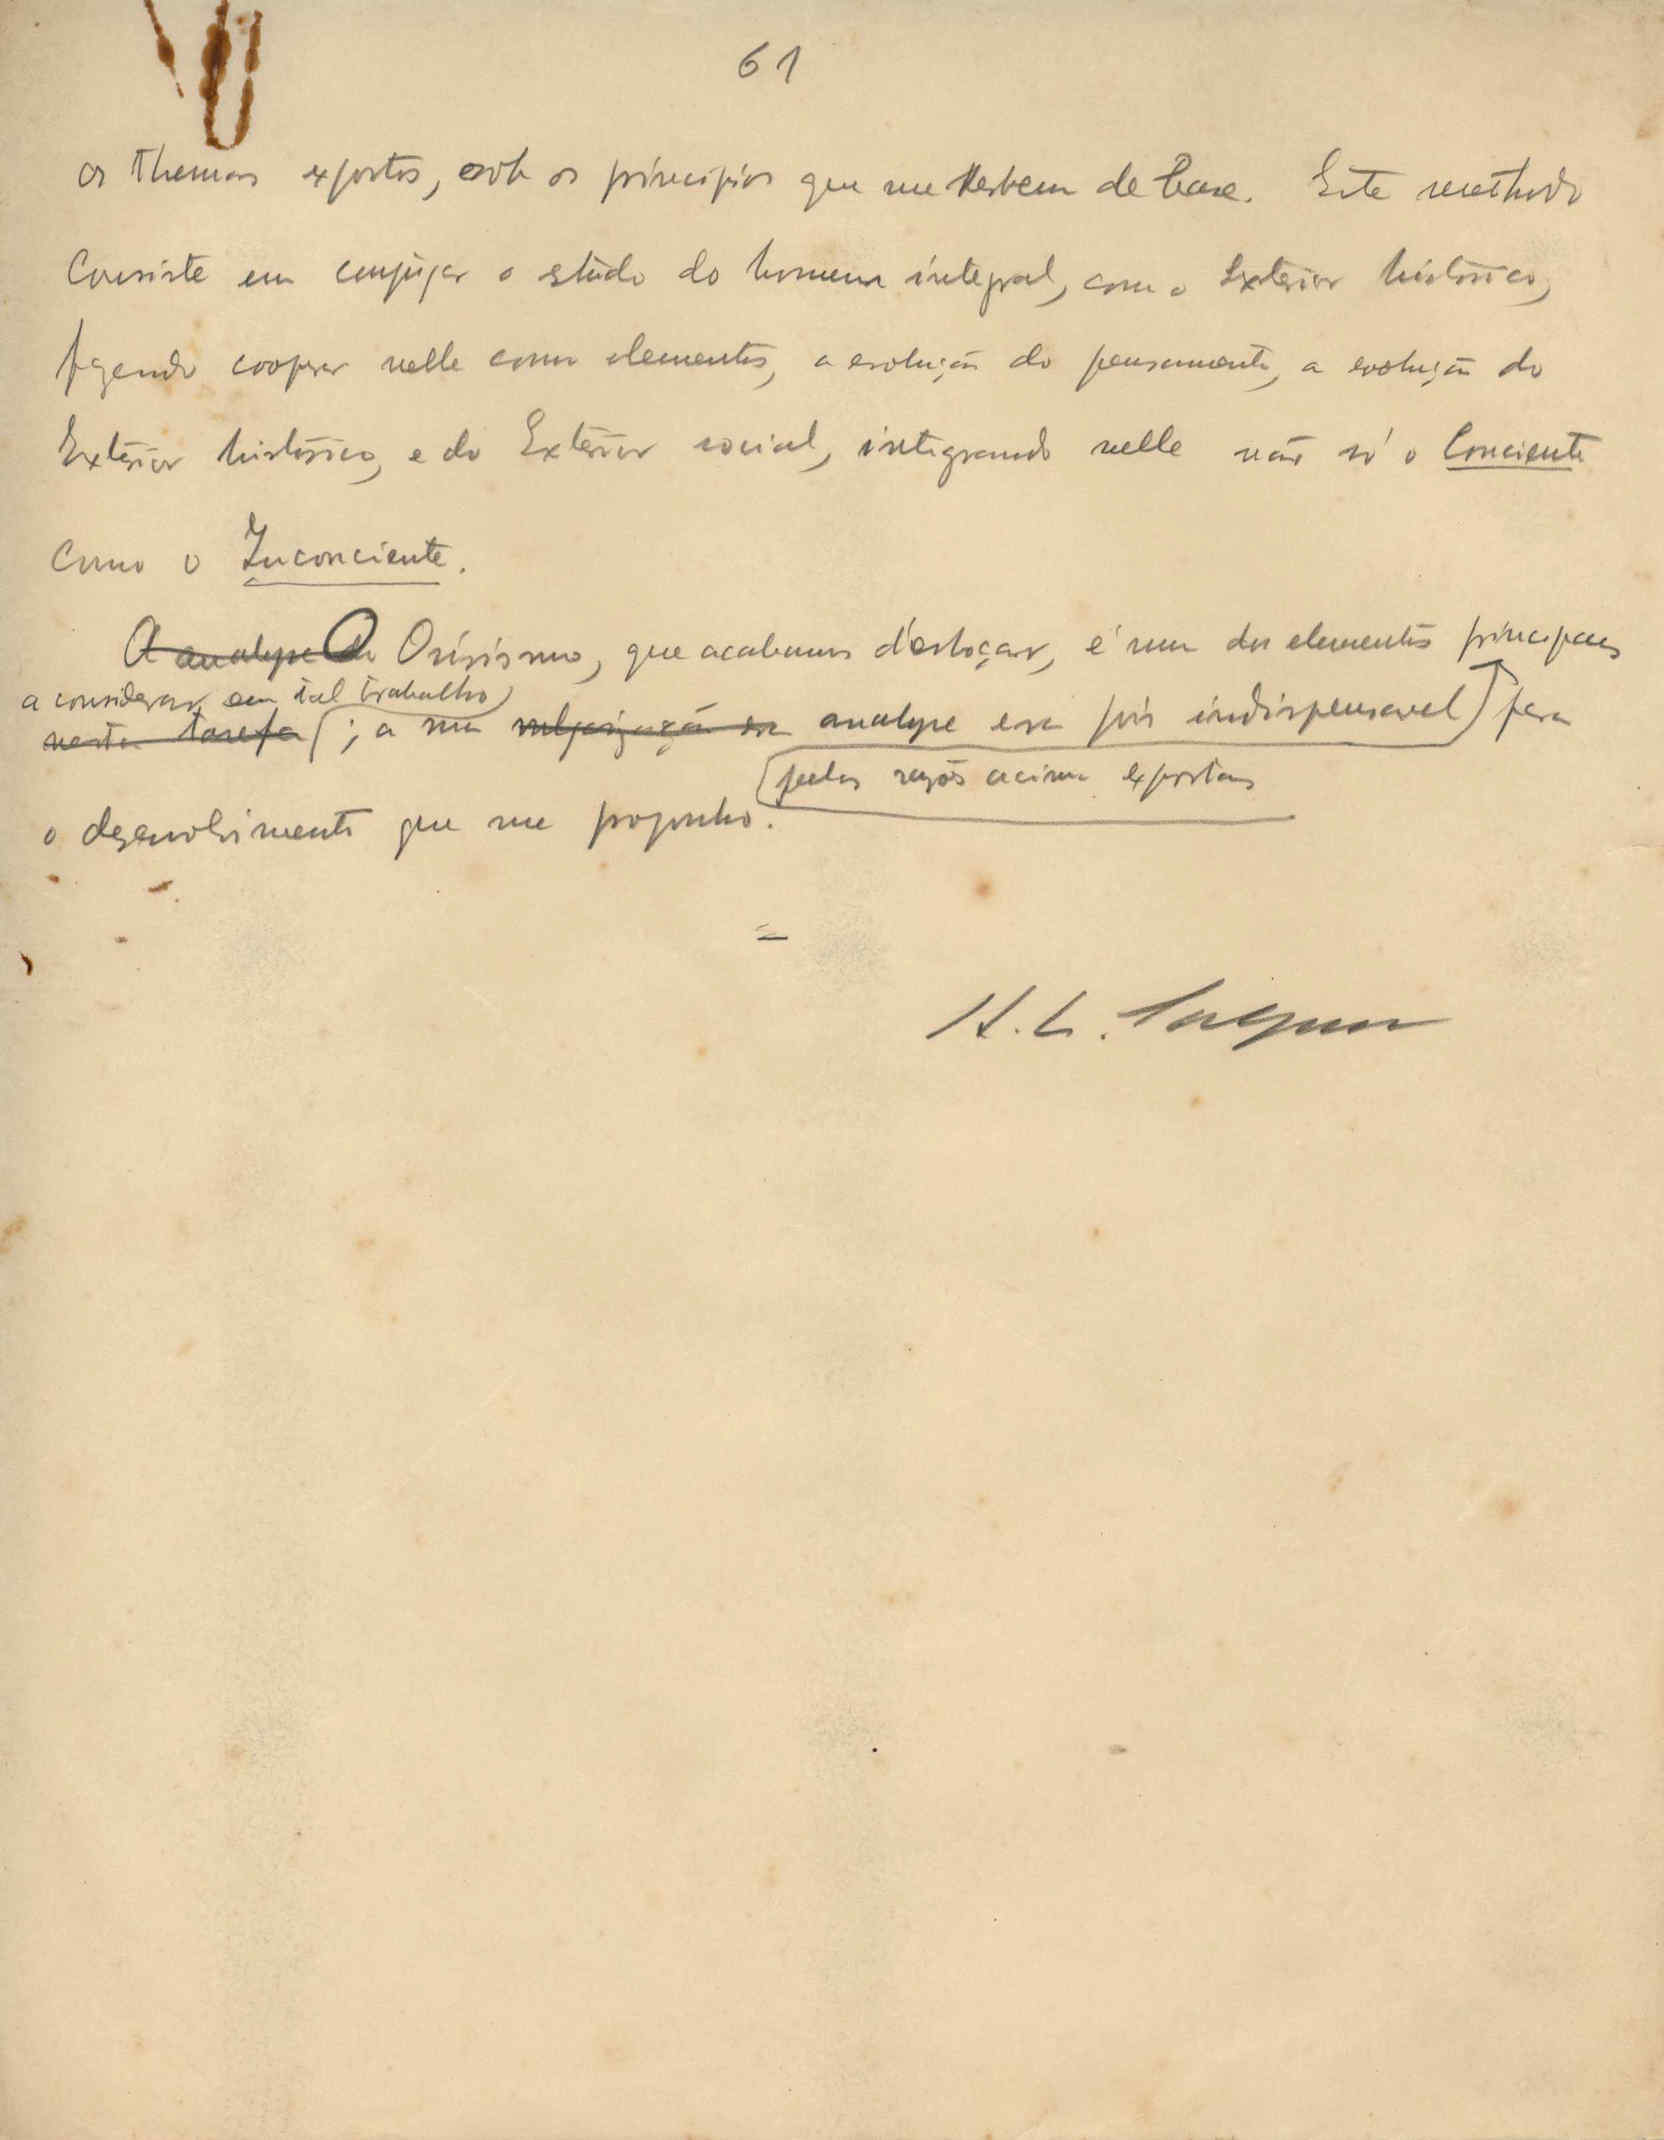 61
os themas expostos, sob os principios que me servem de base. Este methodo
consiste em conjugar o estudo do homem integral, com o Exterior historico,
fazendo cooperar nelle como elementos, a evolução do pensamento, a evolução do
Exterior historico, e do Exterior social, integrando nelle não só o Conciente
como o Inconciente.
A analyse do O Orisismo, que acabamos d'esboçar, é um dos elementos principaes
a considerar em tal trabalho
nesta tarefa ; a sua vulgarização era analyse era pois indispensavel para
pelas razões acima expostas
o desenvolvimento que me proponho.